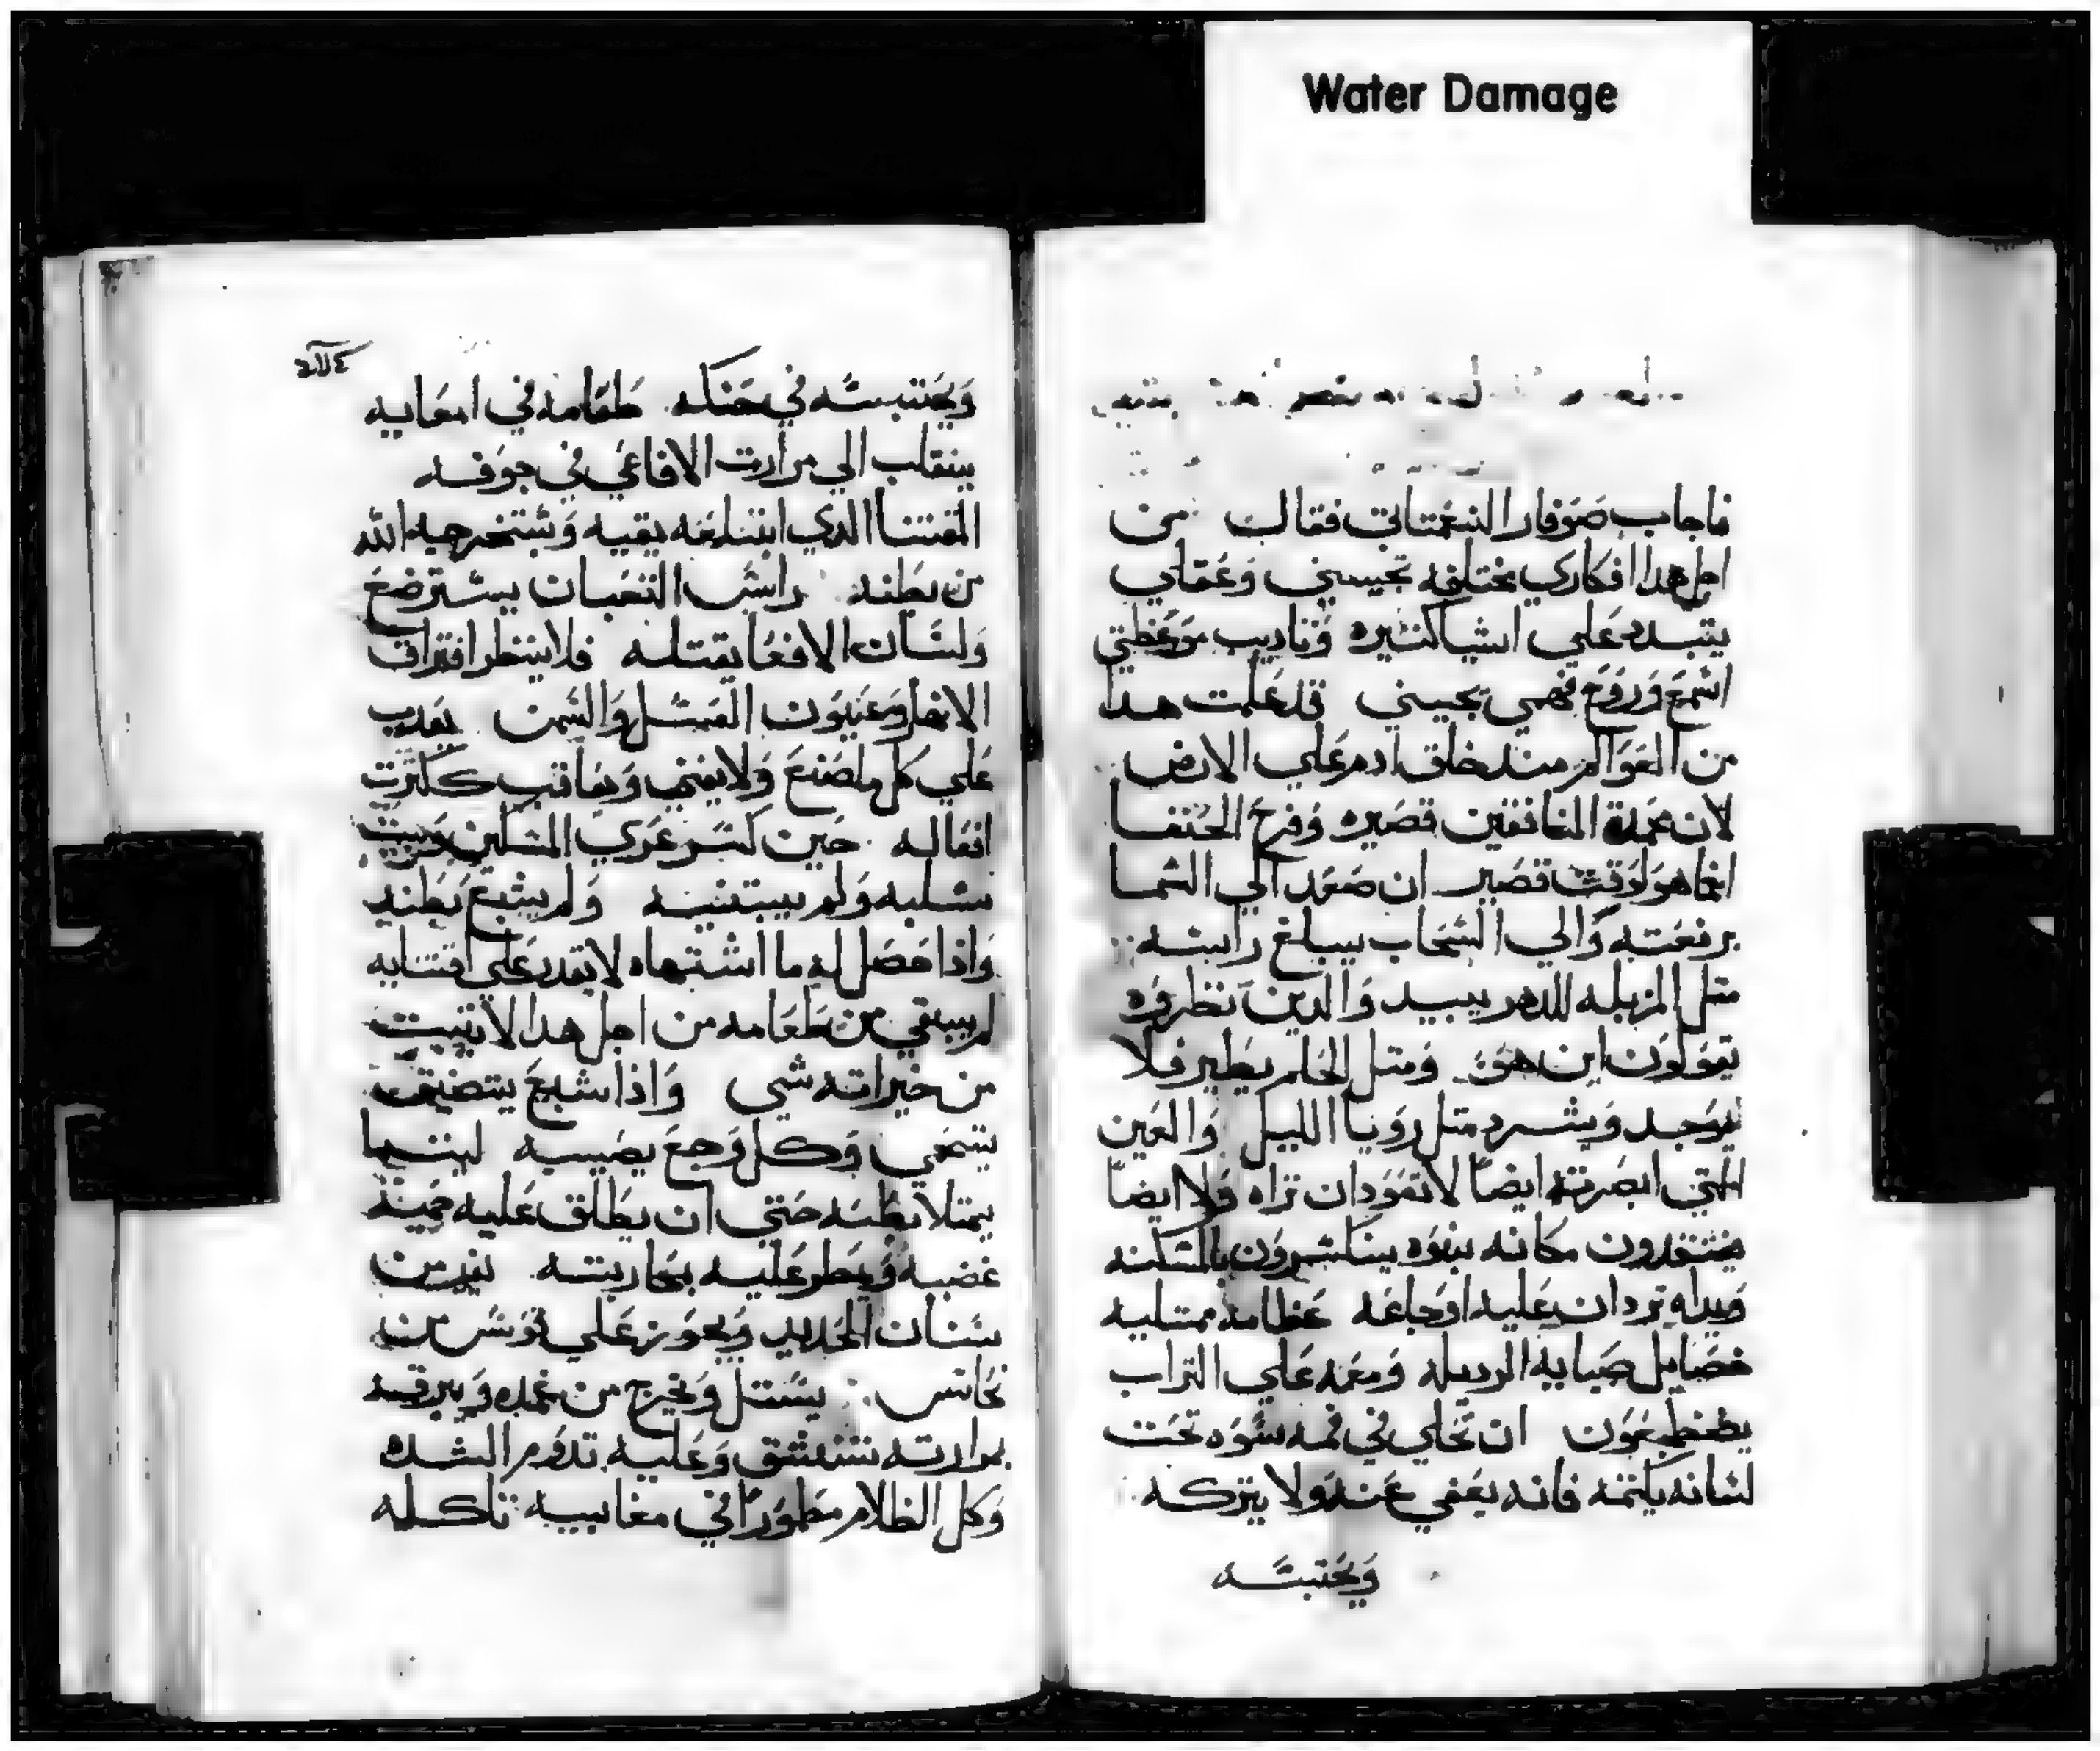 Water Damage
فاجاب صوفار النعمتاني فقال من
اجل هدا افكاري مختلفه تجيبني وعقلي
يتبدد علي اشيا كثيره وتاديب موعظتي
اسمع وروح فهمي تجيبني قد علمت هدا
من العوالم مند خلق ادم علي الارض
لان محمدة المنافقين قصيره وفرح الحنفا
انما هو لوقت قصير ان صعد الي السما
برفعته والي السحاب يبلغ راسه
متل المزبله للدهر يبيد والدين نظروه
يقولون اين هو ومتل الحلم يطير فلا
يوجد ويشرد متل رويا الليل والعين
التي ابصرته ايضا لا تعود ان تراه ولا ايضا
مكانه بنوه ينكسرون بالمسكنه
ويداه تردان عليه اوجاعه عظامه ممتليه
خصايل صبايه الرديله ومعه علي التراب
يضطجعون ان تحلي في فمه سوه تحت
لسانه يكتمه فانه يعفي عنه ولا يتركه
ويحتبسه
ويحتبسه في حنكه طعامه في امعايه
ينقلب الي مرارت الافاعي في جوفه
المقتنا الدي ابتلعه يقيه ويستخرجه الله
من بطنه راس التعبان يسترضع
ولسان الافعا يقتله فلا ينظر افتراق
الانهار وعيون العسل والسمن يعدب
علي كل ما صنع ولا يفني ويعاقب ككترت
افعاله حين كسر عري المساكين وبيت
سلبه ولم يبتنيه ولم يشبع بطنه
واذا حصل له ما اشتهاه لا يقدر علي اقتنايه
لم يبقي من طعامه من اجل هدا لا تتبت
من خيراته شي واذا شبع يتضيق
يتحمي وكل وجع يصيبه ليتما
يمتلا بطنه حتي ان يطلق عليه حمية
غضبه ويمطر عليه بمحاربته يفر من
سنان الحديد ويجوز علي قوس من
نحاس يستل ويخرج من غمده ويبرقد
بمرارته تنشق وعليه تدوم الشده
وكل الظلام مطمورا في مغايبه تاكله